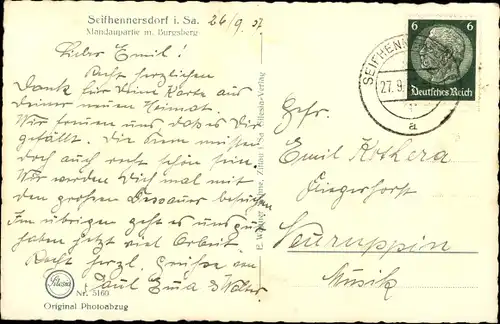 Seifhennersdorf i. Sa. 26/9. 37
Mandaupartie m. Burgsberg
Lieber Emil!
Recht herzlichen
Dank für Deine Karte aus
Deiner neuen Heimat.
Wir freuen uns daß es Dir
gefällt. Die Seen müssen
doch auch recht schön sein.
Wir werden Dich mal mit
den großen Dessauer besuchen
Im übrigen geht es uns gut
haben jetzt viel Arbeit.
Recht herzl. Grüße von
Paul Erna & Walter
Silesia
Nr. 5160
Original Photoabzug
Zittau i. Sa. Silesia-Verlag
6 6
Deutsches Reich
SEIFHENN
27.9.
a
Gefr.
Emil Kothera
Fliegerhorst
Neuruppin
Musik